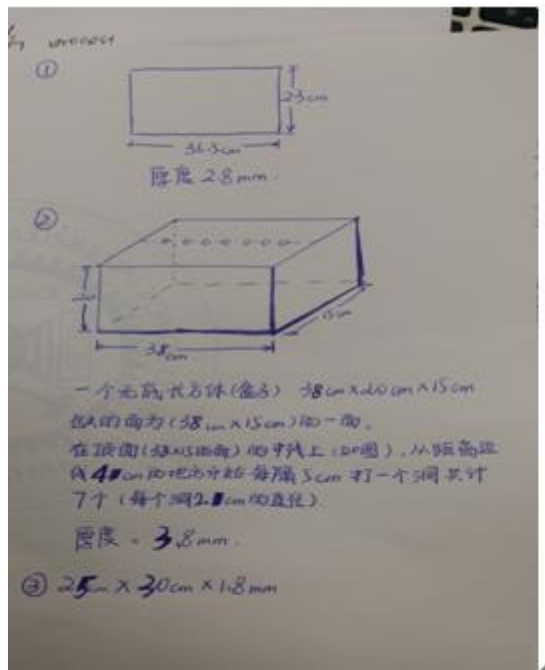 ①
23cm
36.5cm
厚度 2.8mm.
②
15cm
38cm
一个无底长方体(盒子) 38cm×20cm×15cm
的面为(38cm×15cm)的一面。
在顶面(38×15的面)的中线上(如图),从距离边
线4cm的地方开始每隔5cm打一个洞共计
7个(每个洞2.cm的直径)
厚度 = 3.8mm.
③ 25cm × 30cm × 1.8mm